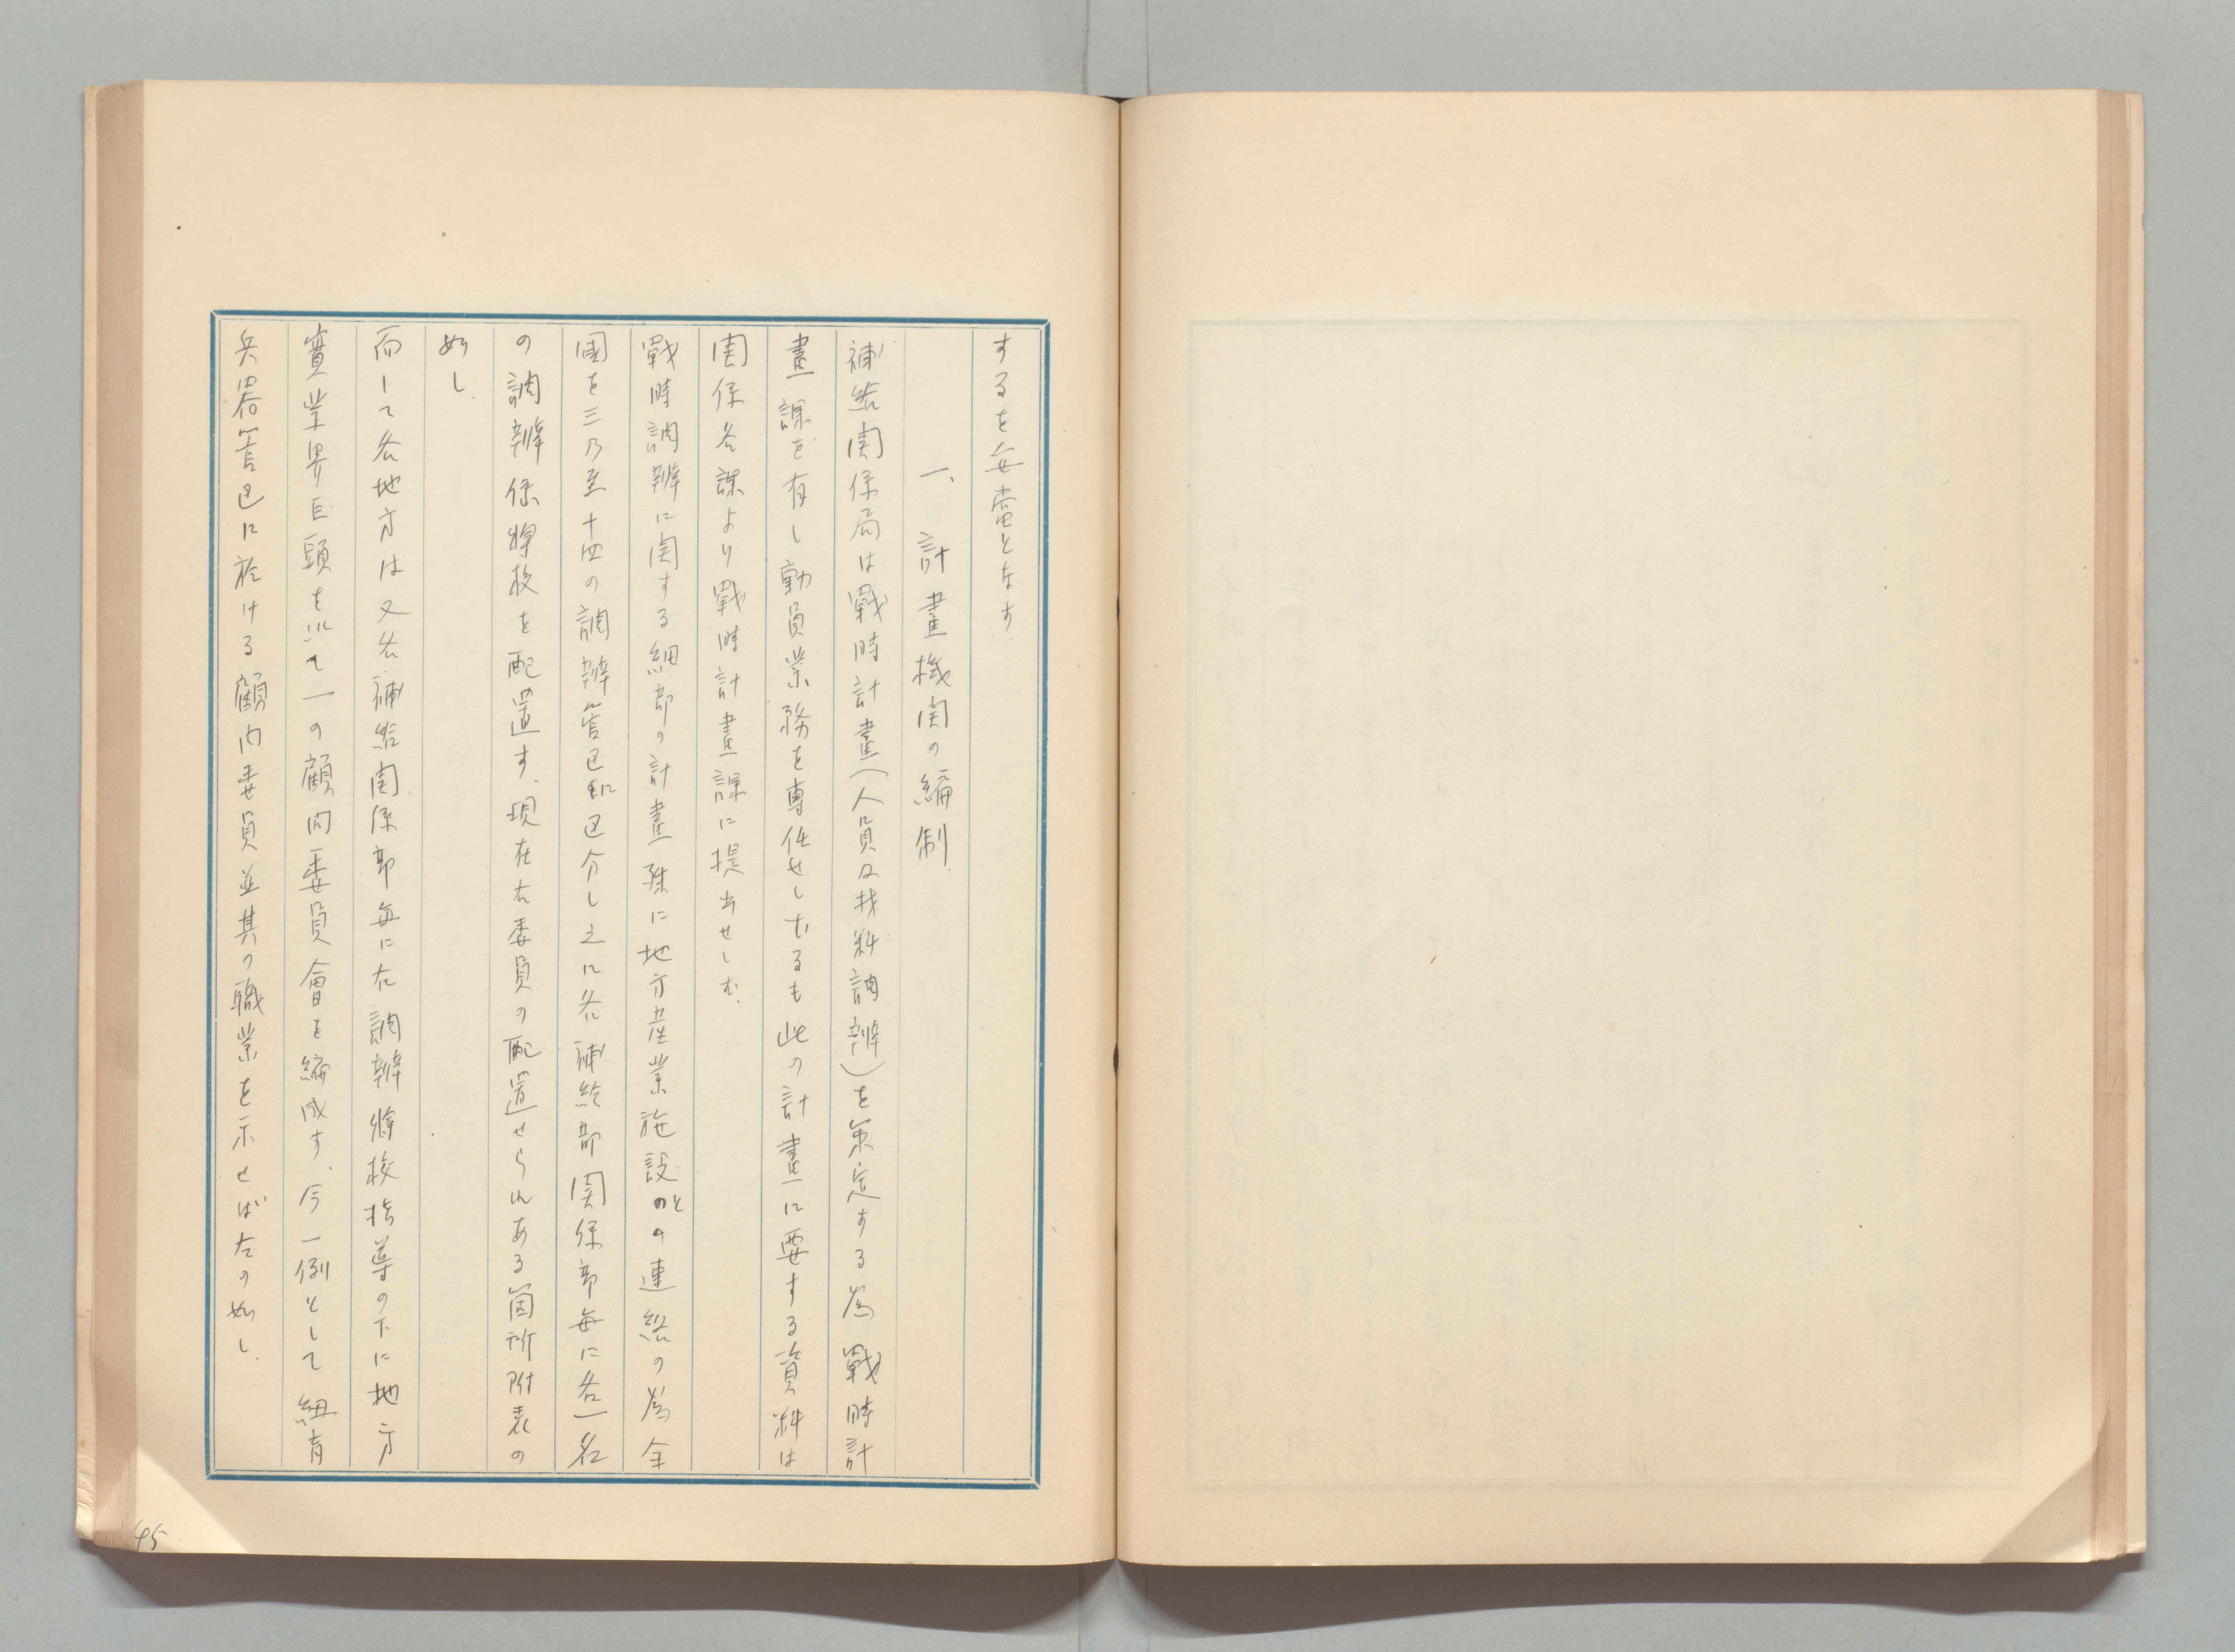 するを妥當となす
一、計畫機関の編制
補給関係局は戰時計畫(人員及材料調辨)を策定する為戰時計
畫課を有し動員業務を專任せしむるも此の計畫に要する資料は
関係各課より戰時計畫課に提出せしむ、
戰時調辨に関する細部の計畫殊に地方産業施設との連絡の為全
國を三乃至十四の調辨管区に区分し之に各補給部関係部每に各一名
の調辨係將校を配置す、現在右委員の配置せられある箇所附表の
如し、
而して各地方は又各補給関係部每に右調辨將校指導の下に地方
實業界巨頭を以て一の顧問委員會を編成す、今一例として紐育
兵器管区に於ける顧問委員並其の職業を示せば左の如し、
45